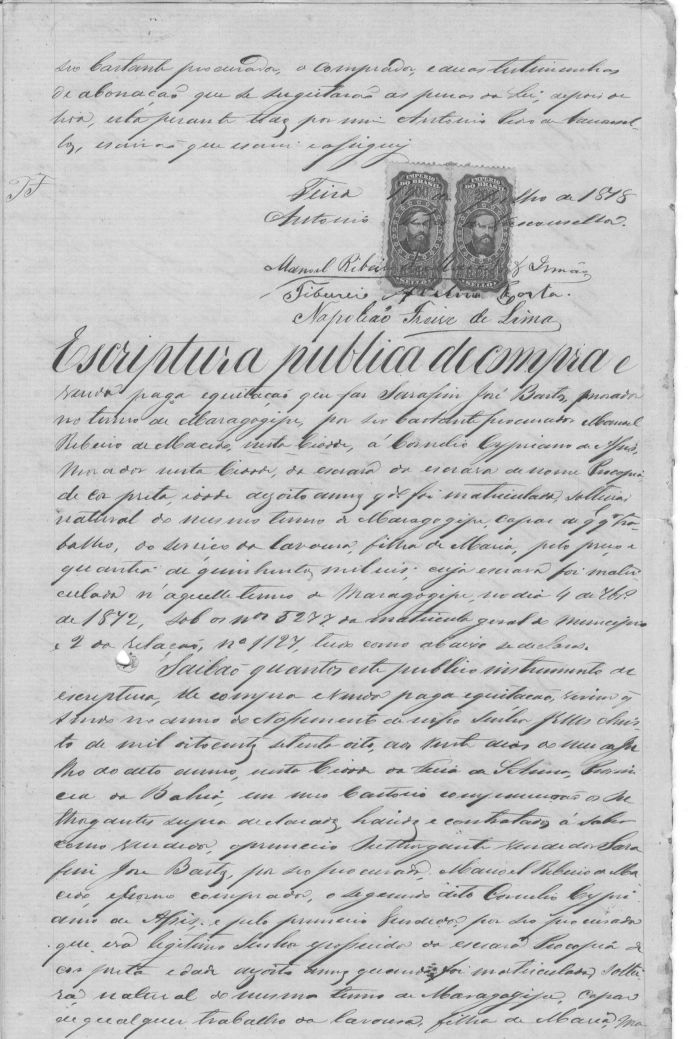 seo bastante procurador, o comprador, e duas testemunhas
de abonação que se sugeitarão as penas da Lei, depois de
lida, esta perante todos por mim Antonio
escrivão que escrevi e assignei
TF
IMPERIO DO BRASIL
IMPERIO DO BRASIL
Feira de Julho de 1878
Antonio Vasconcellos.
SELLO
SELLO
Manoel Ribeiro & Irmão
Tiburcio Costa.
Napoleão Freire de Lima
Escriptura publica de compra e
venda paga equitação que faz Sarafim José Bastos, morador
no termo de Maragogipe, por seo bastante procurador Manoel
Ribeiro de Macedo, nesta Cidade, á Cornelio Cypriano de Assis,
morador nesta Cidade, da escrava de nome Procopia
de cor preta, idade dezoito annos qdo foi matriculada, solteira,
natural do mesmo termo de Maragogipe, capaz de qqr tra-
balho, do serviço da lavoura, filha de Maria, pelo preço e
quantia de quinhentos mil reis cuja escrava foi matri-
culada n'aquelle termo de Maragogipe, no dia 4 de
de 1872, sob os nos 5277 da matricula geral do municipio
e 2 da relação, no 1127, tudo como abaixo se declara.
Saibão quantos este publico instrumento de
escriptura, de compra e venda paga equitação, virem q
sendo no anno do Nascimento de nosso Senhor Jesus Chris-
to de mil oitocentos setenta oito, aos vinte dias do mez de Ju-
lho do dito anno, nesta Cidade da Feira de Sant'Anna, Provin-
cia da Bahia, em meo Cartorio comparecerão os
thorgantes supra declarados, havidos e contratados, á saber
como vendedor, o primeiro outhorgante vendedor Sara
fim José Bastos, por seo procurador, Manoel Ribeiro de Ma-
cedo, e como comprador, o segundo dito Cornelio Cypri-
ano de Assis, e pelo primeiro vendedor, por seo procurador
que era legitimo Senhor e possuidor da escrava Procopia de
cor preta idade dezoito annos quando foi matriculada solte-
ra natural do mesmo termo de Maragogipe, capaz
de qualquer trabalho da lavoura, filha de Maria, ma